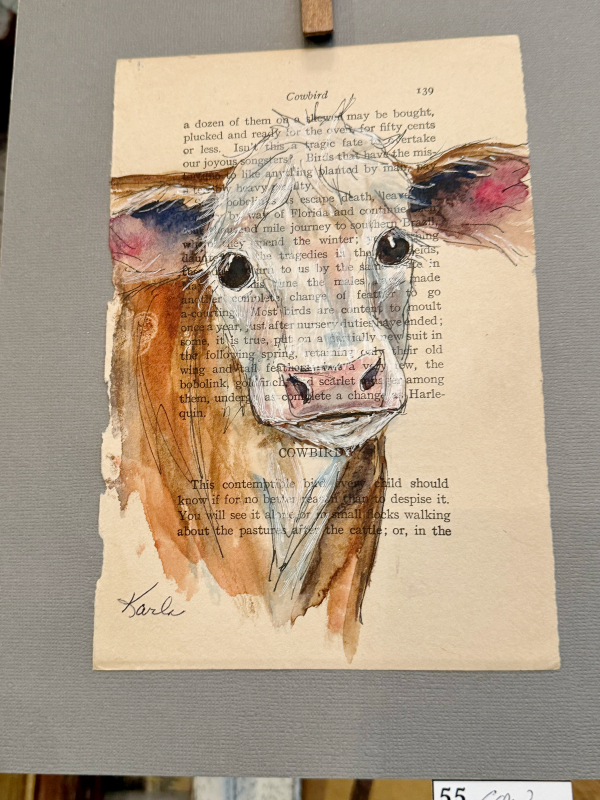 Cowbird 139
a dozen of them on a skewer may be bought,
plucked and ready for the oven, for fifty cents
or less. Isn't this a tragic fate to overtake
our joyous songsters? Birds that have the mis-
to like anything planted by man
a heavy
escape death, leave
by way of Florida and continue
mile journey to southern Brazil,
where they spend the winter;
the tragedies in the
to us by the same in
the males made
another complete change of feather to go
a-courting. Most birds are content to moult
once a year, just after nursery duties have ended;
some, it is true, put on a partially new suit in
the following spring, retaining only their old
wing and tail feathers; a very few, the
bobolink, goldfinch and scarlet among
them, undergo as complete a change as Harle-
quin.
COWBIRD
This contemptible bird every child should
know if for no better reason than to despise it.
You will see it alone or in small flocks walking
about the pastures after the cattle; or, in the
Karla
55